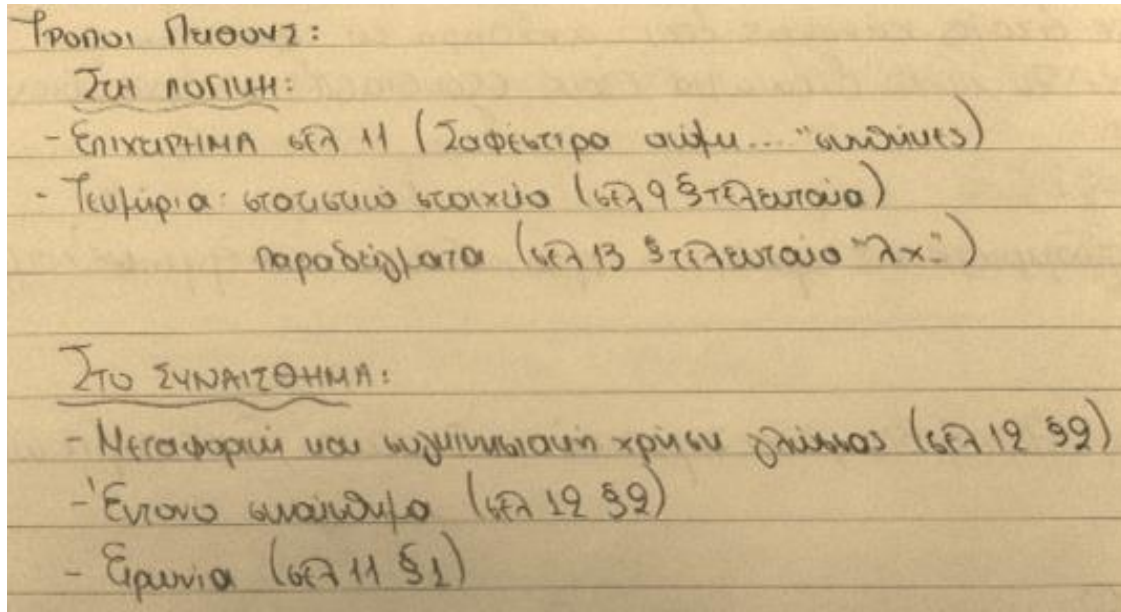 Τρόποι Πειθούς:
Στη λογική:
- Επιχείρημα σελ 11 (Σαφέστερα ... "συνθήκες)
- Τεκμήρια: στατιστικά στοιχεία (σελ 9 § τελευταία)
παραδείγματα (σελ 13 § τελευταία "λχ.")
Στο ΣΥΝΑΙΣΘΗΜΑ:
- Μεταφορική και συγκινησιακή χρήση γλώσσας (σελ 12 §2)
- Έντονο συναίσθημα (σελ 12 §2)
- Ειρωνία (σελ 11 §1)